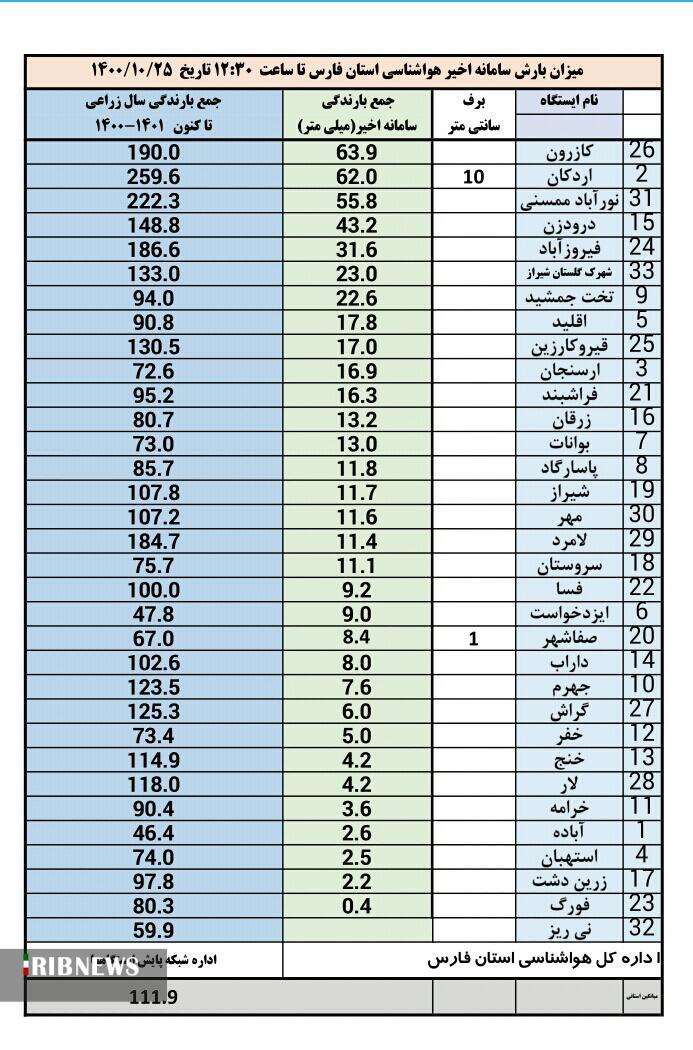 میزان بارش سامانه اخیر هواشناسی استان فارس تا ساعت ۱۲:۳۰ تاریخ ۱۴۰۰/۱۰/۲۵
نام ایستگاه برف جمع بارندگی جمع بارندگی سال زراعی
سانتی متر سامانه اخیر(میلی متر) تا کنون ۱۴۰۱-۱۴۰۰
26 کازرون 63.9 190.0
2 اردکان 10 62.0 259.6
31 نورآباد ممسنی 55.8 222.3
15 درودزن 43.2 148.8
24 فیروزآباد 31.6 186.6
33 شهرک گلستان شیراز 23.0 133.0
9 تخت جمشید 22.6 94.0
5 اقلید 17.8 90.8
25 قیروکارزین 17.0 130.5
3 ارسنجان 16.9 72.6
21 فراشبند 16.3 95.2
16 زرقان 13.2 80.7
7 بوانات 13.0 73.0
8 پاسارگاد 11.8 85.7
19 شیراز 11.7 107.8
30 مهر 11.6 107.2
29 لامرد 11.4 184.7
18 سروستان 11.1 75.7
22 فسا 9.2 100.0
6 ایزدخواست 9.0 47.8
20 صفاشهر 1 8.4 67.0
14 داراب 8.0 102.6
10 جهرم 7.6 123.5
27 گراش 6.0 125.3
12 خفر 5.0 73.4
13 خنج 4.2 114.9
28 لار 4.2 118.0
11 خرامه 3.6 90.4
1 آباده 2.6 46.4
4 استهبان 2.5 74.0
17 زرین دشت 2.2 97.8
23 فورگ 0.4 80.3
32 نی ریز 59.9
اداره کل هواشناسی استان فارس اداره شبکه پایش
IRIBNEWS
میانگین استانی 111.9